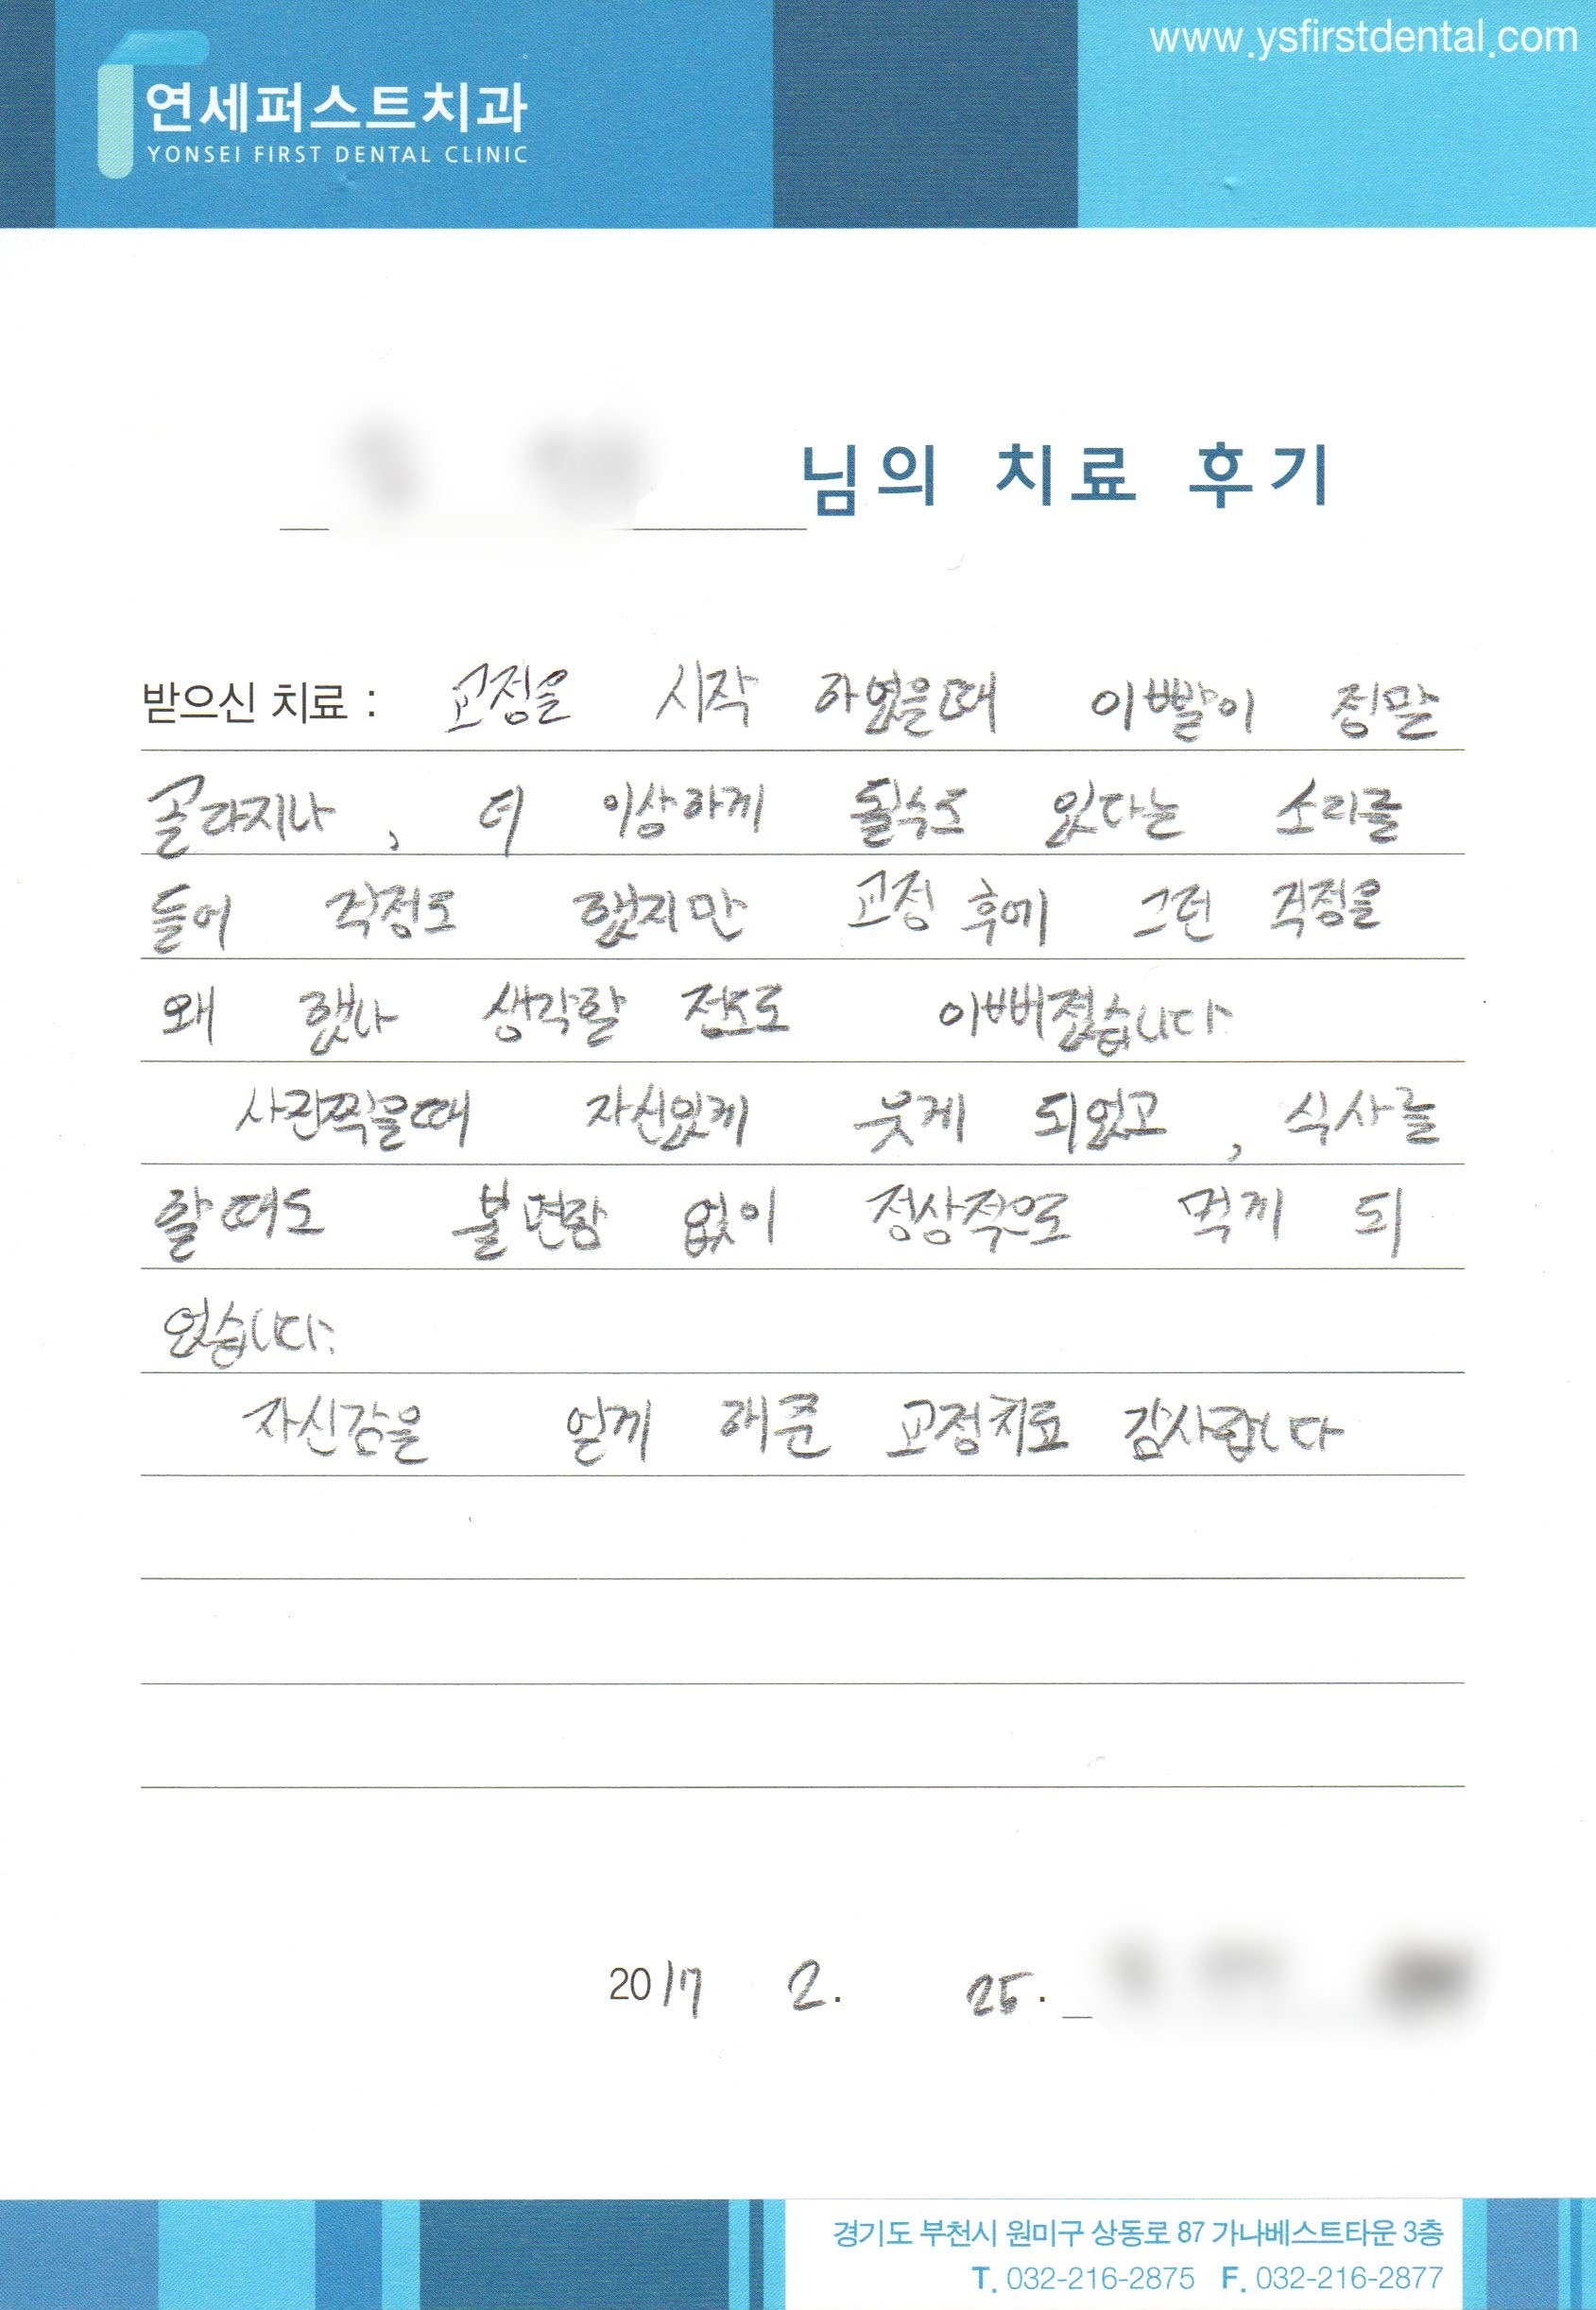 www.ysfirstdental.com
연세퍼스트치과
YONSEI FIRST DENTAL CLINIC
님의 치료 후기
받으신 치료 : 교정을 시작 하였을때 이빨이 정말
골라지나, 더 이상하게 될수도 있다는 소리를
들어 걱정도 했지만 교정 후에 그런 걱정을
왜 했나 생각할 정도로 이뻐졌습니다.
사진찍을때 자신있게 웃게 되었고, 식사를
할때도 불편함 없이 정상적으로 먹게 되
었습니다.
자신감을 얻게 해준 교정치료 감사합니다
2017 2. 25.
경기도 부천시 원미구 상동로 87 가나베스트타운 3층
T. 032-216-2875 F. 032-216-2877